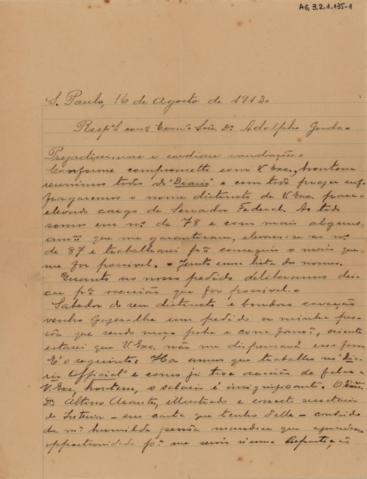 AG.3.2.1.135-1
S. Paulo, 16 de Agosto de 1912.
Adolpho Gordo
e cordiaes saudações.
Conforme commpometti com V. Exa, hontem
reunimos todos do "Diario" e com todo prazer suf-
fragaremos o nome distincto de V. Exa. para o
elevado cargo de Senador Federal. Ao todo
somos em no. de 78 e com mais alguns
amos. que me garantiram, elevar-se-a ao no.
de 87 e trabalharei pa. conseguir o mais que
me for possivel. Junto uma lista de nomes.
Quanto ao nosso pedido deliberamos dei-
xar pa. occasião que for possivel.
Sabedor do seu distincto e bondoso coração
venho fazer-lhe um pedido a minha pes-
soa que sendo moço pobre e com
estou que V. Exa. não me dispensará esse favor.
E' o seguinte: Ha annos que trabalho no "Dia-
rio Official" e como já tive occasião de falar a
V. Exa. hontem, o salario é insignificante. O
Dr. Altino Arantes, illustrado e correcto secretario
do Interior - em carta que tenho d'elle - convido
da ma. humilde pessôa mandou que
opportunidade pa. me servir n'uma Repartição